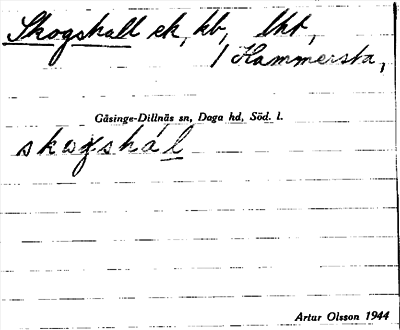 Skogshall ek, kb, lht,
/ Hammersta,
Gåsinge-Dillnäs sn, Daga hd, Söd. l.
skogshál
Artur Olsson 1944